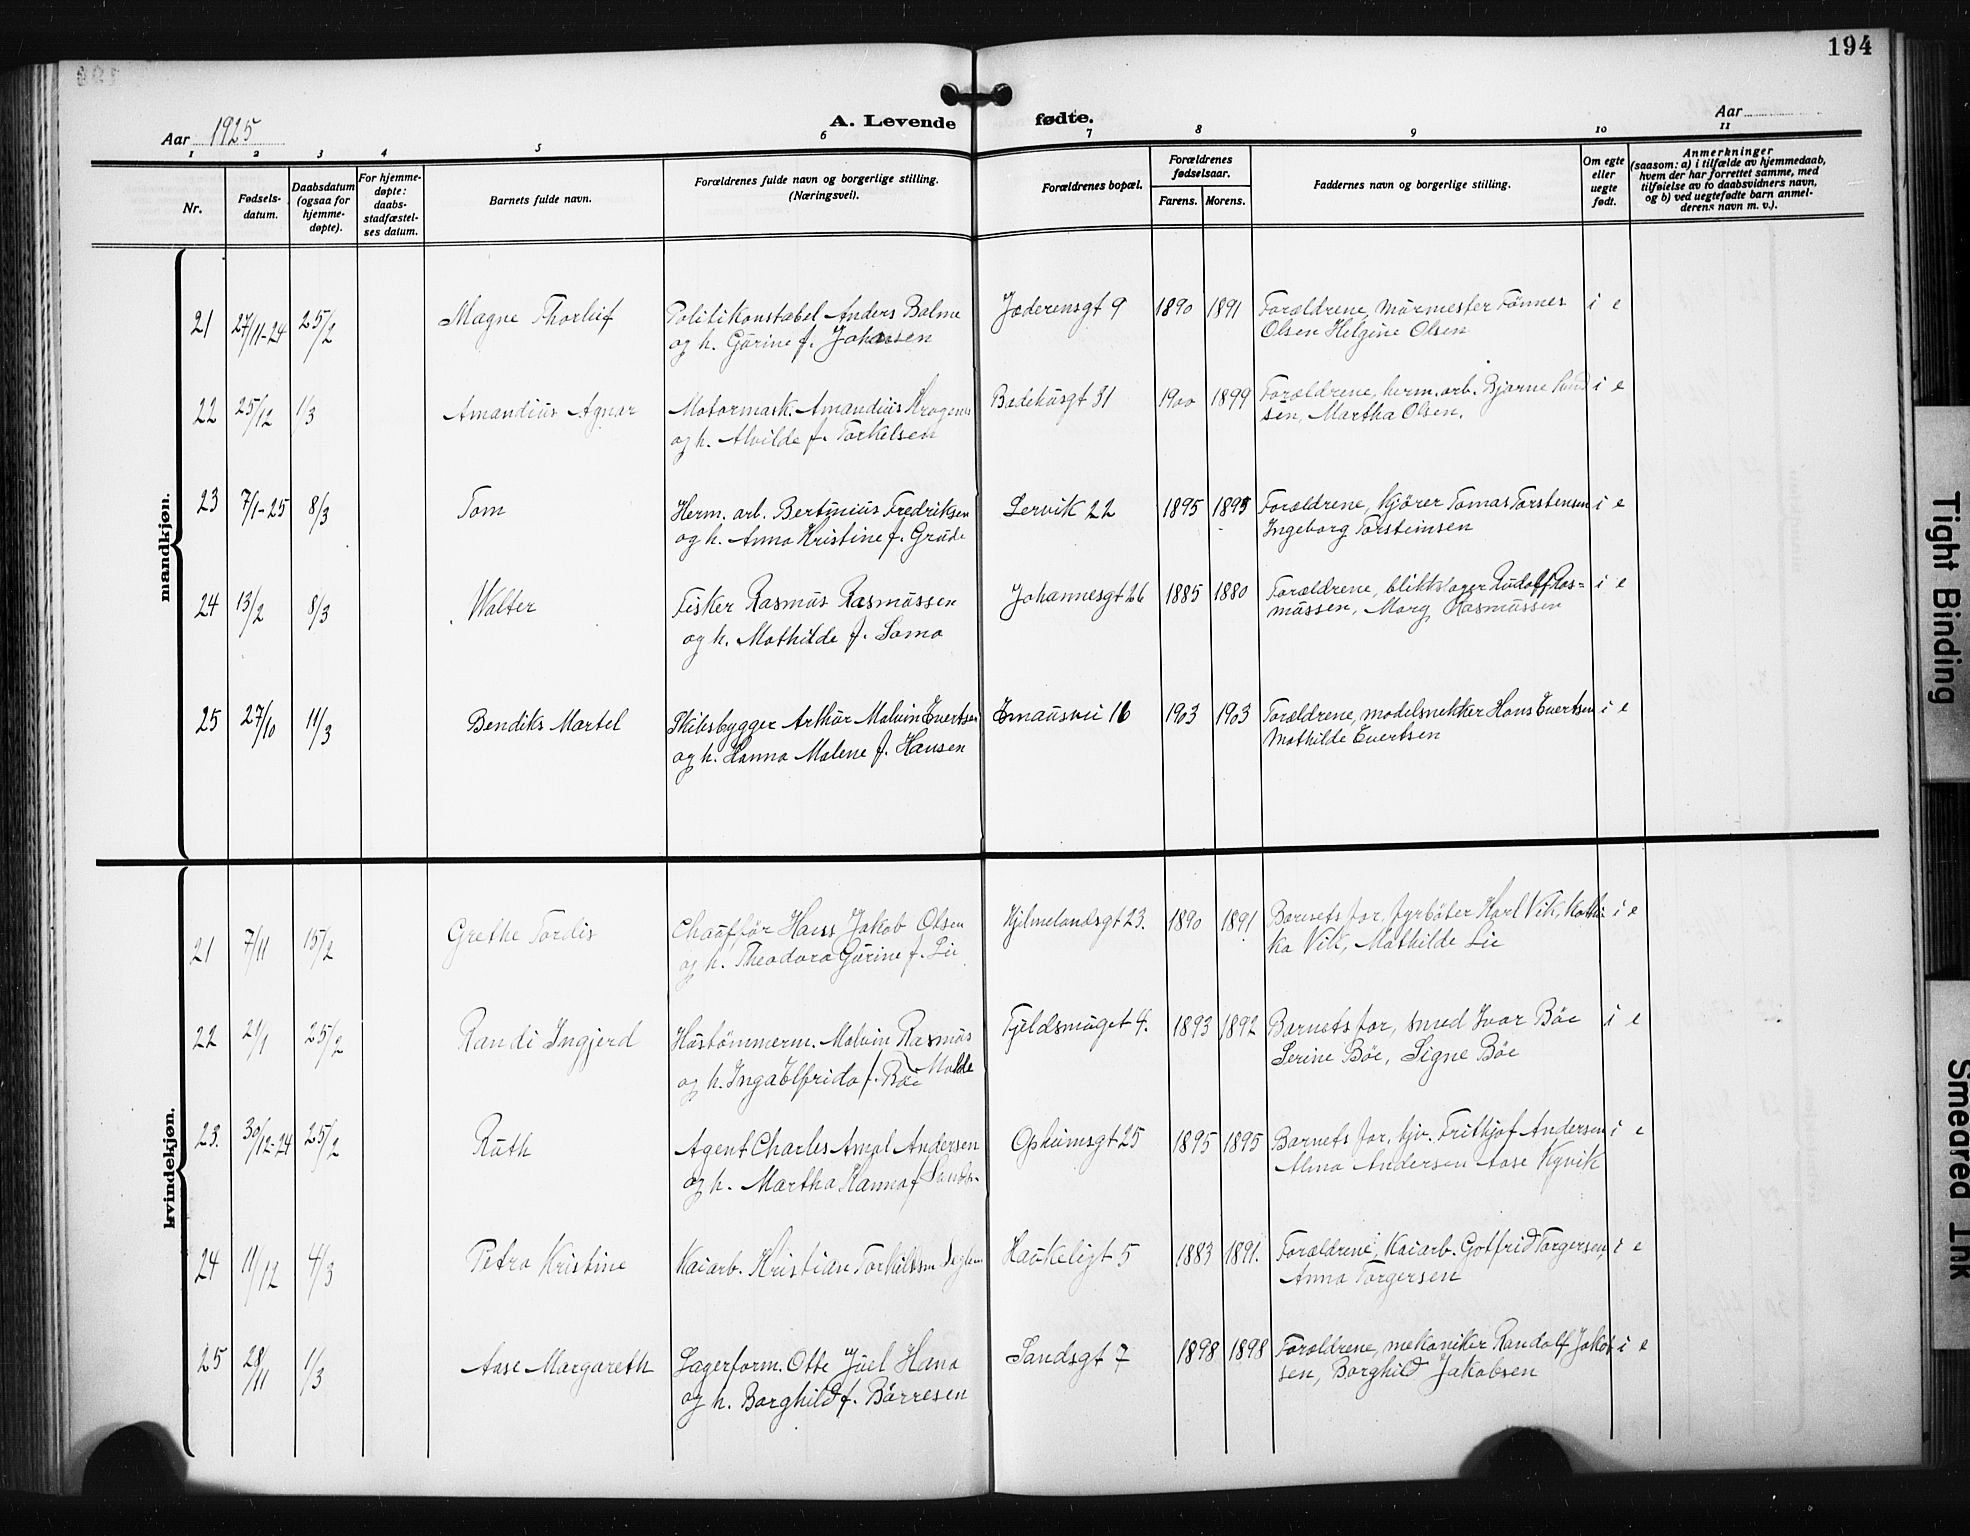 194
Aar 1925
A. Levende fødte.
Aar
1 2 3 4 5 6 7 8 9 10 11
Nr.
Fødsels-
datum.
Daabsdatum
(ogsaa for
hjemme-
døpte).
For hjemme-
døpte:
daabs-
stadfæstel-
ses datum.
Barnets fulde navn.
Forældrenes fulde navn og borgerlige stilling.
(Næringsvei).
Forældrenes bopæl.
Forældrenes
fødselsaar.
Farens. Morens.
Faddernes navn og borgerlige stilling.
Om egte
eller
uegte
født.
Anmerkninger
(saasom: a) i tilfælde av hjemmedaab,
hvem der har forrettet samme, med
tilføielse av to daabsvidners navn,
og b) ved uegtefødte barn anmel-
derens navn m. v.).
mandkjøn.
21 27/11-24 25/2 Magne Thorleif Politikonstabel Anders Bolme Jæderensgt 9 1890 1891 Forældrene, murmester Tønnes i e
og h. Gurine f. Johansen Olsen Helgine Olsen
22 25/12 1/3 Amandius Agnar Motormask. Amandius Krogenes Bedehusgt 31 1900 1899 Forældrene, herm. arb. Bjarne i e
og h. Alvilde f. Torkelsen sen, Martha Olsen.
23 7/1-25 8/3 Tom Herm. arb. Bertinius Fredriksen Lervik 22 1895 1895 Forældrene, kjører Tomas Torstensen i e
og h. Anna Kristine f. Grude Ingeborg Torsteinsen
24 13/2 8/3 Walter Fisker Rasmus Rasmussen Johannesgt 26 1885 1880 Forældrene, blikkslager Rudolf Ras= i e
og h. Mathilde f. Soma mussen, Marg Rasmussen
25 27/10 11/3 Bendiks Martel Skibsbygger Arthur Malvin Evertsen Emausvei 16 1903 1903 Forældrene, modelsnekker Hans Evertsen i e
og h. Hanna Malene f. Hansen Mathilde Evertsen
kvindekjøn.
21 7/11 15/2 Grethe Tordis Chauffør Hans Jakob Olsen Hjelmelandsgt 23. 1890 1891 Barnets far, fyrbøter Karl Vik, i e
og h. Theodora Gurine f. Lie ka Vik, Mathilde Lie
22 21/1 25/2 Randi Ingjerd Hustømmerm. Malvin Rasmus Fjeldsmuget 4. 1893 1892 Barnets far, smed Ivar Bøe i e
Molde
og h. Inga Elfrida f. Bøe Serine Bøe, Signe Bøe
23. 30/12-24 25/2 Ruth Agent Charles Amal Andersen Opheimsgt 25 1895 1895 Barnets far, Frithjof Andersen i e
og h. Martha Hanna f Alma Andersen Aase Kyvik
24 11/12 4/3 Petra Kristine Kaiarb. Kristian Haukeligt 5 1883 1891. Forældrene, Kaiarb. Gotfrid Torgersen, i e
Anna Torgersen
25 28/11 1/3 Aase Margareth Lagerform. Otte Juel Hana Sandsgt 7 1898 1898 Forældrene, mekaniker Randolf Jakob i e
og h. Borghild f. Børresen sen, Borghild Jakobsen
Tight Binding
Smeared Ink